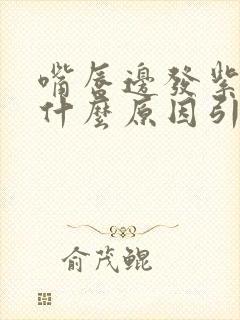 嘴唇邊發紫
什麼原因引
俞茂鲲